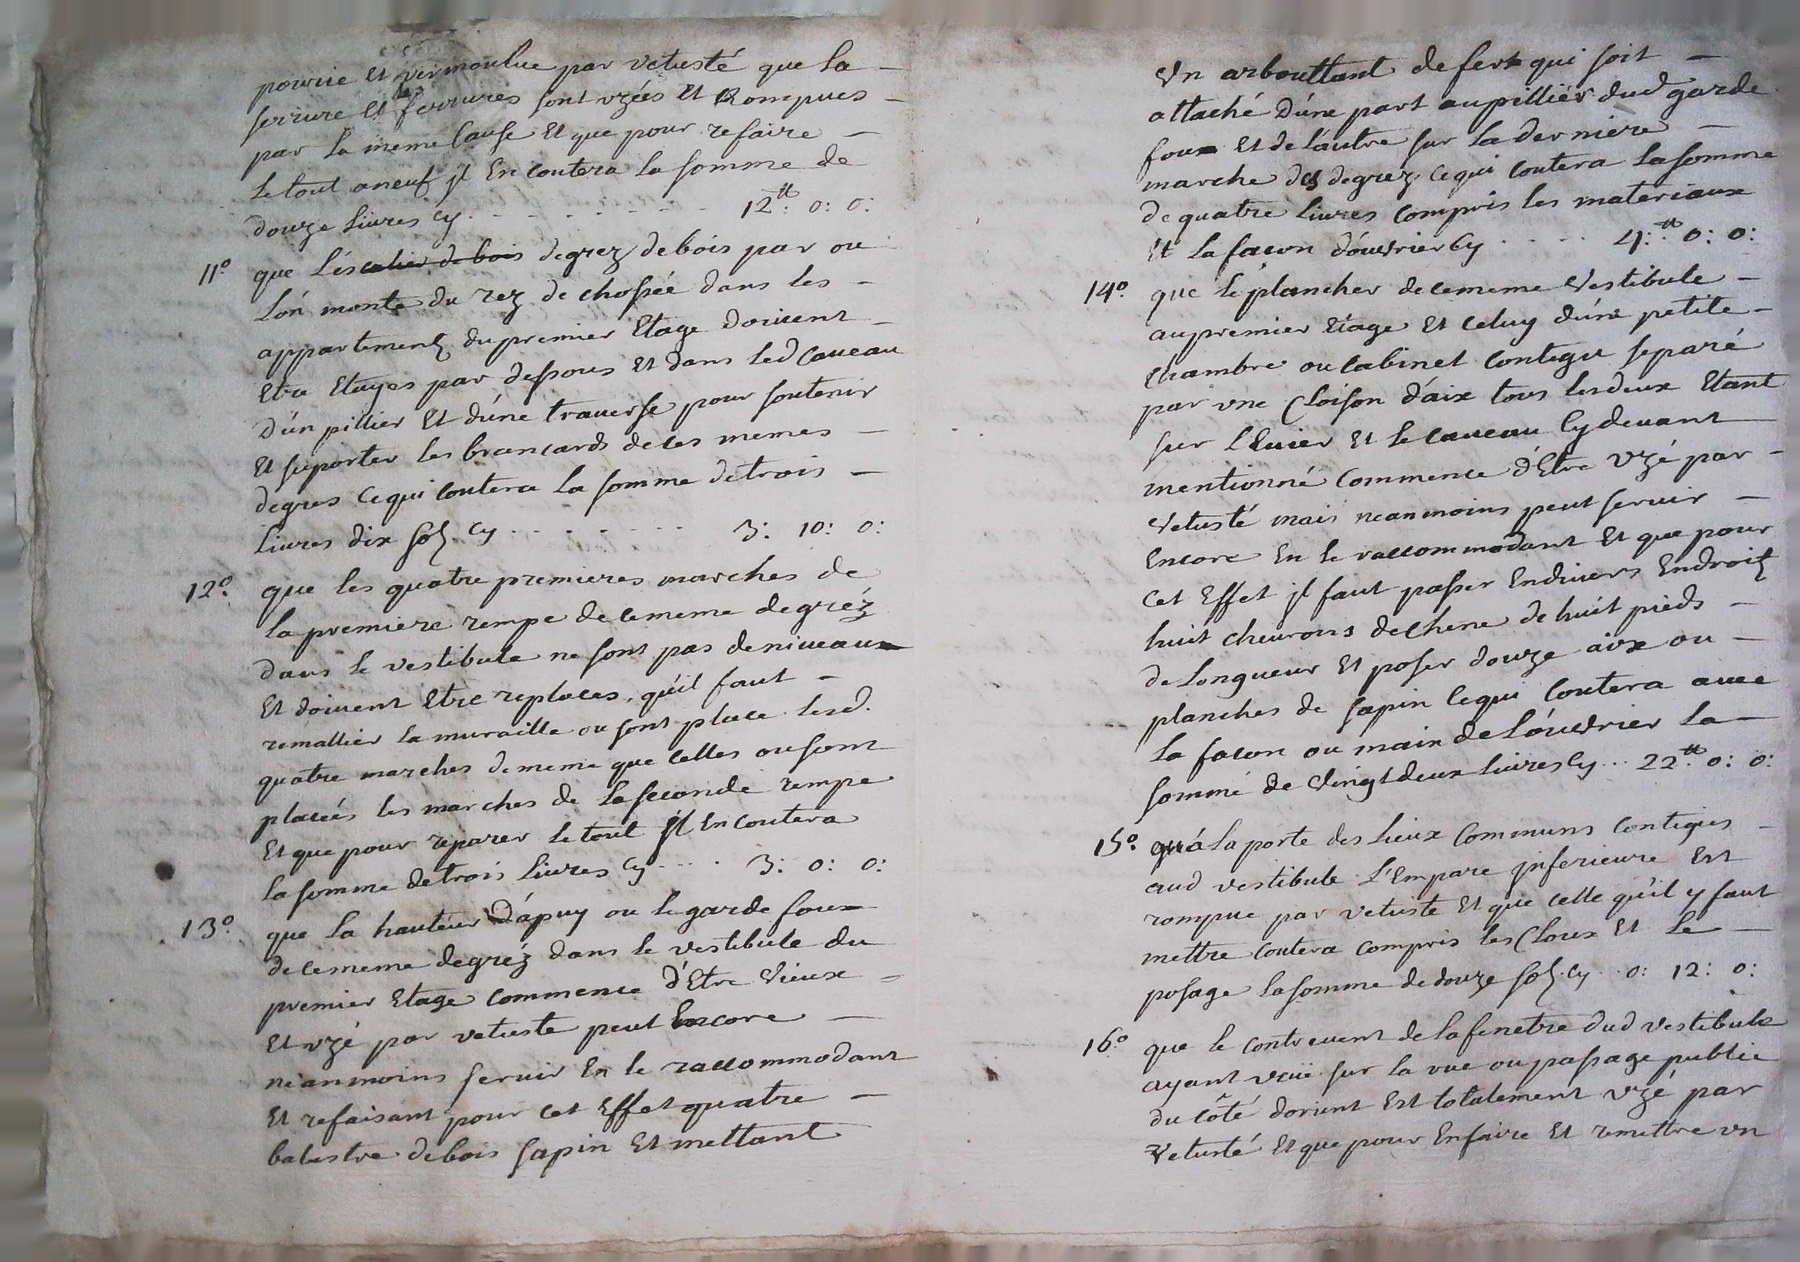 pourrie Et vermoulue par vetusté que la
serrure Et les ferrures sont uzées Et Rompues
par la meme Cause Et que pour refaire
le tout aneuf jl En coutera la somme de
douze livres cy - - - - - - - - 12tt: 0: 0:
11° que L'éscalier de bois degrez de bois par ou
L'ón monte du rez de chossée dans les
appartements du premier Etage doivent
Etre Etayes par dessous Et dans led caveau
D'ún pillier Et d'úne traverse pour soutenir
Et suporter les brancards de ces memes
degres Ce qui coutera La somme de trois
livres dix sols cy - - - - - - 3: 10: 0:
12° que les quatre premieres marches de
la premiere rempe de ce meme degréz
dans le vestibule ne sont pas de niveaux
Et doivent Etre replaces, qu'il faut
remallier la muraille ou sont place lesd.
quatre marches de meme que Celles ou sont
placés les marches de la seconde rempe
Et que pour reparer le tout jl En coutera
la somme de trois livres cy - - - 3: 0: 0:
13° que la hauteur D'ápuy ou le garde foux
de ce meme degréz dans le vestibule du
premier Etage commence d'Etre Vieux
Et uzé par vetuste peut Encore
néanmoins servir En le raccommodant
Et refaisant pour cet Effet quatre
balustre de bois sapin Et mettant
Un arbouttant de fert qui soit
attaché D'úne part au pillier dud garde
foux Et de l'autre sur la derniere
marche des degrez ce qui coutera la somme
de quatre livres compris les materiaux
Et la facon d'ouvrier Cy - - - - 4:tt 0: 0:
14°. que le plancher de ce meme Vestibule
au premier Etage Et Celuy d'úne petite
chambre ou Cabinet contegu separé
par une Cloison d'áix tous les deux Etant
sur L'Evier Et le caveau Cy devant
mentionné Commence d'Etre Uzé par
Vetusté mais neanmoins peut servir
Encore En le raccommodant Et que pour
cet Effet jl faut passer En divers Endroits
huit chevrons de chene de huit pieds
de Longueur Et poser douze aix ou
planches de sapin Ce qui Coutera avec
la facon ou main de L'óuvrier la
somme de Vingt deux livres Cy ... 22tt: 0: 0:
15° qu'á la porte des Lieux Communs contigus
aud vestibule L'Empare jnferieure Est
rompue par vetuste Et que celle qu'il y faut
mettre Coutera compris les Cloux Et Le
posage la somme de douze sols cy .. 0: 12: 0:
16° que le contrevent de la fenetre dud vestibule
ayant vüe sur la rue ou passage public
du côté dorient Est totalement Uzé par
Vetusté Et que pour En faire Et remettre un